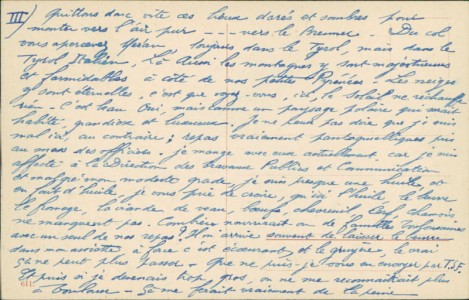 III) Quittons donc vite ces lieux dorés et sombres pour
monter vers l'air pur --- vers le Brenner - Du col
vous apercevez toujours dans le Tyrol, mais dans le
Tyrol Italien, Là aussi les montagnes y sont majestueuses
et formidables à côté de nos petites Pyrénées - Les neiges
y sont éternelles, c'est que voyez-vous ici, le soleil ne réchauffe
rien - C'est beau Oui, mais comme un paysage polaire qui serait
habité, grandiose et Je ne peux pas dire que je suis
mal ici, au contraire; repas vraiment pantagruéliques pris
au mess des officiers, je mange avec eux actuellement, car je suis
affecté à la Direction des Travaux Publics et Communication
et malgré mon modeste grade, je suis presque une huile et
en fait d'huile, je vous prie de croire, qu'ici l'huile, le beurre
le fromage, la viande de veau, boeuf, chevreuil, cerf, chamois,
ne manquent pas - Combien nourrirait-on de familles toulousaines
avec un seul de nos repas? M'en arrive souvent de laisser le beurre
dans mon assiette à faire c'est écoeurant, et le gruyère, le vrai
ça ne peut plus passer - Que ne puis-je vous en envoyer par T.S.F.
Et puis si je devenais trop gros, on ne me reconnaîtrait plus
à Toulouse - Ça me ferait vraiment de la peine